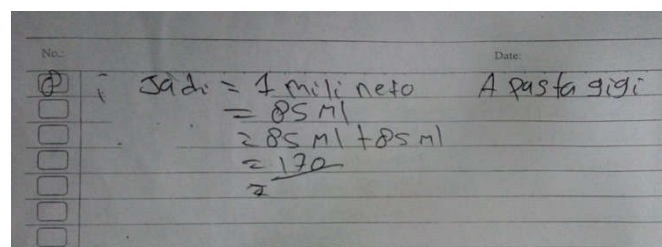 No.: Date:
8 : Jadi = 1 mili neto A pasta gigi
= 85 ml
= 85 ml + 85 ml
= 170
=